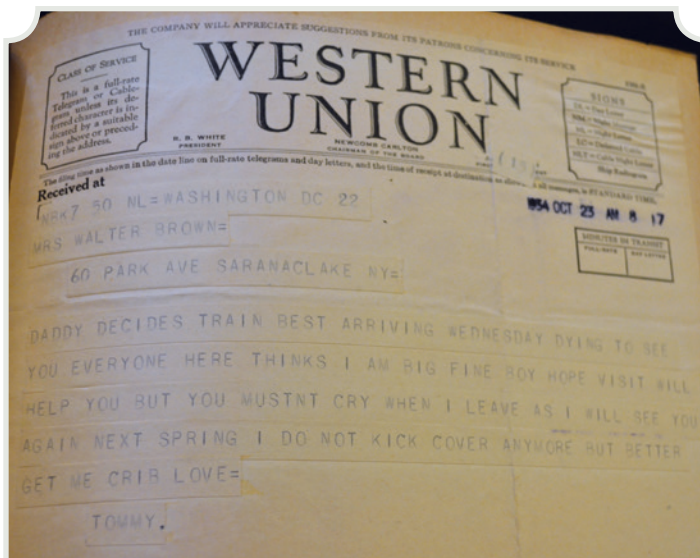 THE COMPANY WILL APPRECIATE SUGGESTIONS FROM ITS PATRONS CONCERNING ITS SERVICE
CLASS OF SERVICE
This is a full-rate
Telegram or Cable-
gram unless its de-
ferred character is in-
dicated by a suitable
sign above or preced-
ing the address.
WESTERN
UNION
R. B. WHITE
PRESIDENT
NEWCOMB CARLTON
CHAIRMAN OF THE BOARD
SIGNS
DL = Day Letter
NL = Night Letter
LC = Deferred Cable
NLT = Cable Night Letter
Ship Radiogram
The filing time as shown in the date line on full-rate telegrams and day letters, and the time of receipt at destination as shown on all messages, is STANDARD TIME.
Received at
NBK7 50 NL=WASHINGTON DC 22
1934 OCT 23 AM 8 17
MRS WALTER BROWN=
60 PARK AVE SARANACLAKE NY=
MINUTES IN TRANSIT
FULL-RATE DAY LETTER
DADDY DECIDES TRAIN BEST ARRIVING WEDNESDAY DYING TO SEE
YOU EVERYONE HERE THINKS I AM BIG FINE BOY HOPE VISIT WILL
HELP YOU BUT YOU MUSTNT CRY WHEN I LEAVE AS I WILL SEE YOU
AGAIN NEXT SPRING I DO NOT KICK COVER ANYMORE BUT BETTER
GET ME CRIB LOVE=
TOMMY.